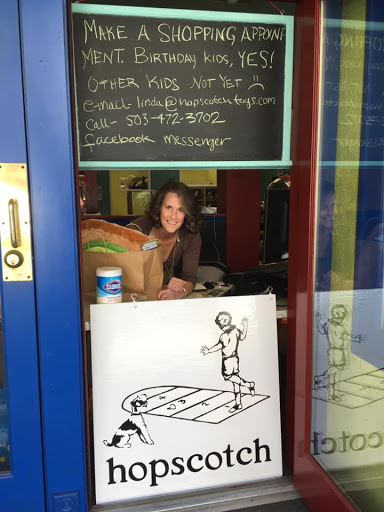 MAKE A SHOPPING APPOINT
MENT. BIRTHDAY KIDS, YES!
OTHER KIDS NOT YET ☹
e-mail- linda@hopscotchtoys.com
call- 503-472-3702
facebook messenger
CLOROX
hopscotch